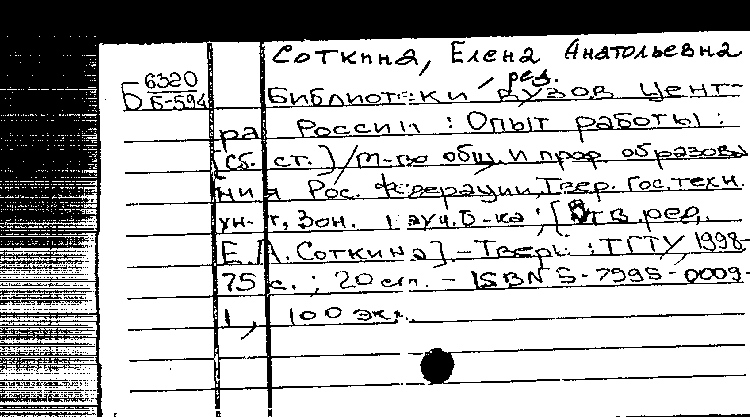 Соткина, Елена Анатольевна
ред.
Б 6320
Б-594
Библиотеки вузов Цент-
ра России : Опыт работы :
[сб. ст.] / М-во общ. и проф. образова
ния Рос. Федерации, Твер. гос. техн.
ун-т, Зон. науч. б-ка ; [Отв. ред.
Е.А. Соткина] - Тверь : ТГТУ, 1998-
75 с. ; 20 см. - ISBN 5-7995-0009-
1, 100 экз.